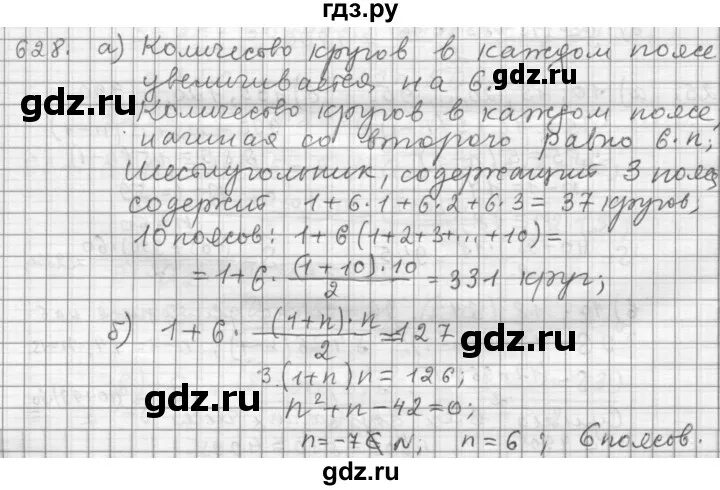 гдз.ру
628. а) Количество кругов в каждом поясе
увеличивается на 6.
gdz.ru
gdz.ru
Количество кругов в каждом поясе,
начиная со второго равно 6·n;
Шестиугольник, содержащий 3 пояса
содержит 1+6·1+6·2+6·3=37 кругов,
10 поясов: 1+6(1+2+3+...+10)=
=1+6·(1+10)·10/2=331 круг;
gdz.ru
б) 1+6·(1+n)·n/2=127
3·(1+n)n=126;
gdz.ru
n²+n-42=0;
gdz.ru
n=-7∉N; n=6; 6 поясов.
гдз.ру